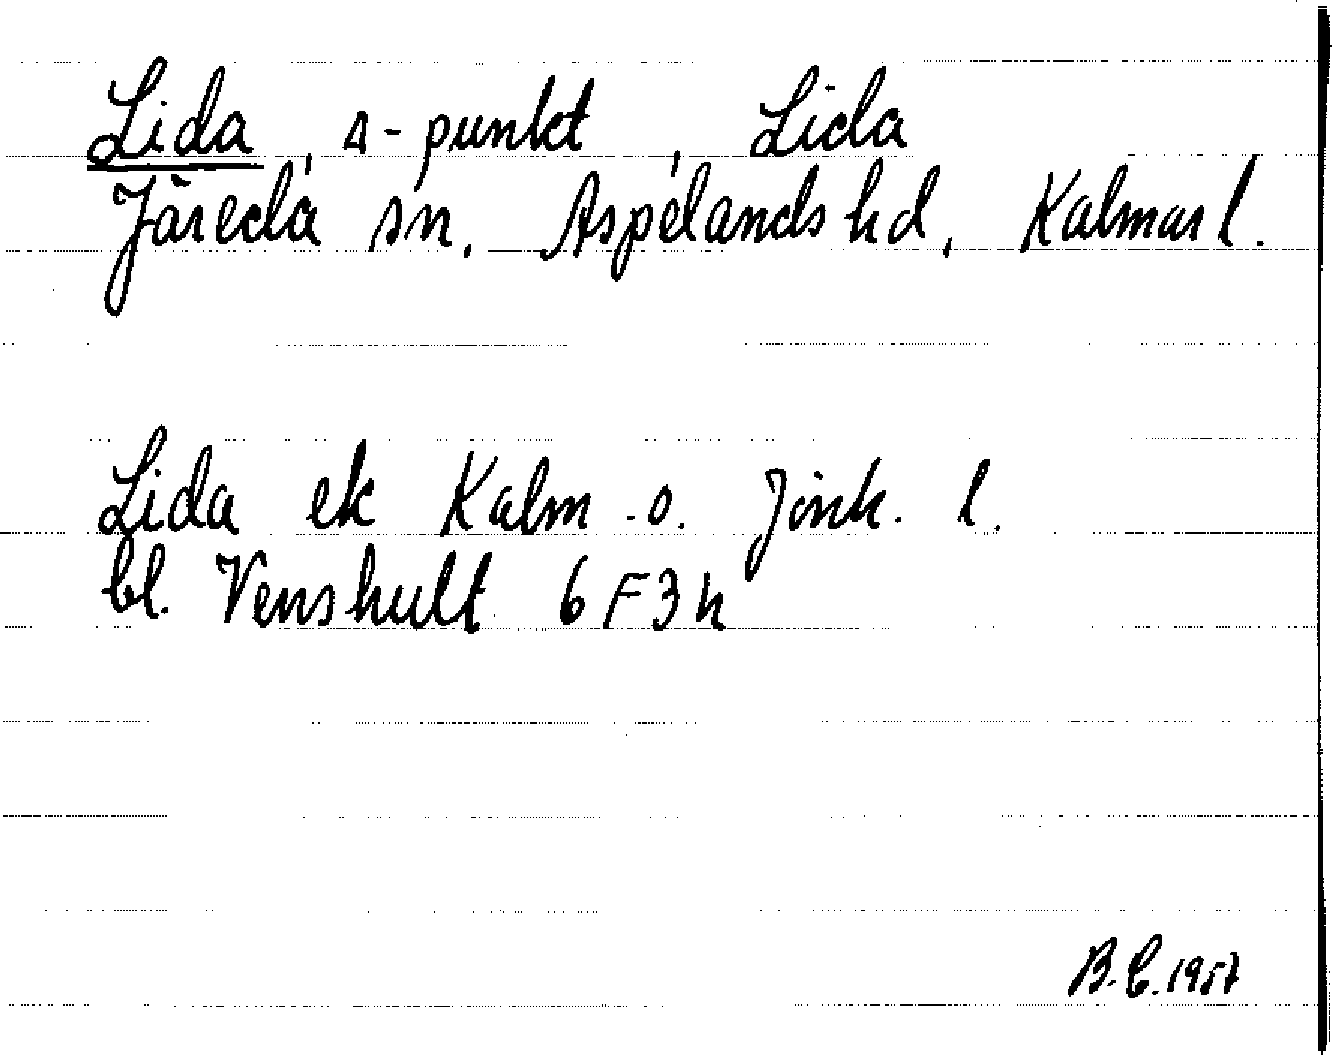 Lida, Δ-punkt, Lida
Järeda sn, Aspelands hd, Kalmar l.
Lida ek Kalm. o. Jönk. l.
bl. Venshult 6F3h
B.C. 1957